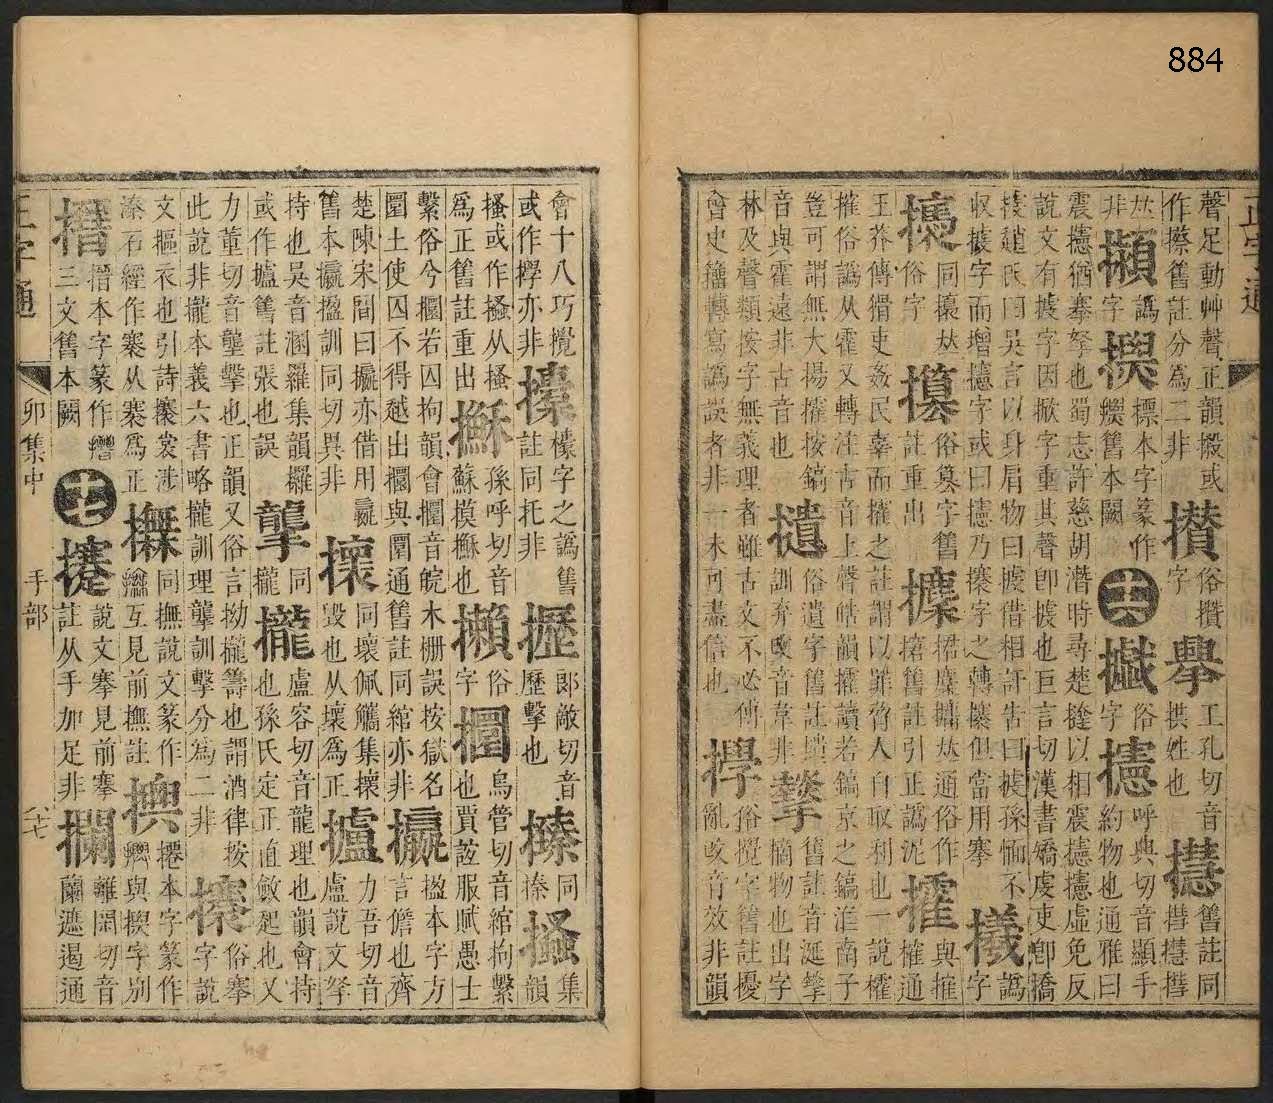 884
聲足動艸聲正韻撥或
作攃舊註分為二非
攢
俗攢
字
擧
工孔切音
拱姓也
舊註同
𠀤
非
攋
譌
字
標本字篆作
舊本闕
十六
俗
字
攇
呼典切音顯手
約物也通雅曰
震攇猶搴拏也蜀志許慈胡潛時尋楚撻以相震攇攇虛免反
說文有㨿字因掀字重其聲卽㨿也巨言切漢書矯虔吏卽撟
㨿趙氏曰吳言以身肩物曰㨿借相訐告曰㨿孫愐不
收㨿字而增攇字或曰攇乃攐字之轉攐但當用搴
譌
字
同攘𠀤
俗字
攥
俗篡字舊
註重出
𠀤通俗作
舊註引正譌泥
㩁
與搉
搉通
王莽傳猾吏姦民辜而㩁之註謂以罪脅人自取利也一說㩁
搉俗譌从霍又轉注古音上聲皓韻㩁讀若鎬京之鎬淮南子
豈可謂無大揚㩁按鎬
音與霍遠非古音也
俗遺字舊註
訓弃改音葦非
舊註音涎
摘物也出字
林及聲類按字無義理者雖古文不必傳
會史籀轉寫譌誤者非一未可盡信也
俗攪字舊註擾
亂改音效非韻
會十八巧攪
或作亦非
字之譌舊
註同托非
㩹
郎敵切音
歷擊也
同
搸
集
韻
搔或作从搔
為正舊註重出
孫呼切音
蘇摸也
攋
俗
字
烏管切音綰拘繫
也賈誼服賦愚士
繫俗兮若囚拘韻會音皖木柵誤按獄名
圜土使囚不得越出與圜通舊註同綰亦非
攍
本字方
言儋也齊
楚陳宋間曰攍亦借用贏
舊本攍訓同切異非
同壞佩觿集
毀也从壞為正
攎
力吾切音
盧說文拏
持也吳音涵羅集韻攞
或作攎舊註張也誤
同
攏
攏
盧容切音龍理也韻會持
也孫氏定正直斂起也又
力董切音壟擊也正韻又俗言拗攏籌也謂酒律按
此說非攏本義六書略攏訓理訓擊分為二非
攐
俗搴
字說
文摳衣也引詩攐裳涉
溱石經作褰从褰爲正
同撫說文篆作
互見前撫註
捲本字篆作
與字別
本字篆作
三文舊本闕
十七
攓
說文搴見前搴
註从手加足非
攔
離閑切音
蘭遮遏通
正字通
卯集中
手部
六十七